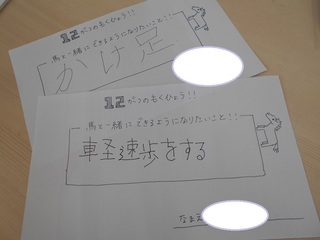 12がつのもくひょう!!
馬と一緒にできるようになりたいこと!!
かけ足
12がつのもくひょう!!
馬と一緒にできるようになりたいこと!!
車軽速歩をする
なまえ